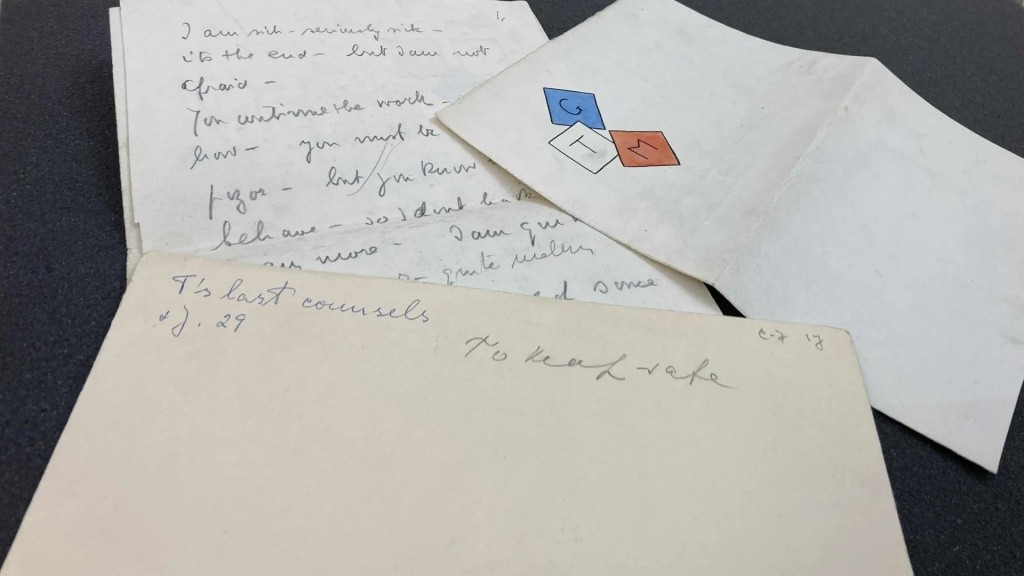 1.
I am sick - seriously sick -
its the end - but I am not
afraid -
You continue the work -
how - you must be
but you know
behave - so I dont
more - I am
quite
some
G
T
M
T's last counsels
J. 29
To keep safe